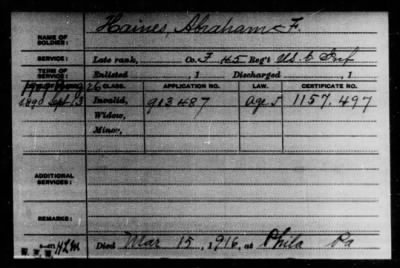 NAME OF SOLDIER: Haines, Abraham F.
SERVICE: Late rank, Co. F 45 Reg't U.S. C Inf
TERM OF SERVICE: Enlisted , 1 Discharged , 1
CLASS. APPLICATION NO. LAW. CERTIFICATE NO.
1890 Sept 13 Invalid, 913487 age S 1157.497
Widow,
Minor,
ADDITIONAL SERVICES:
REMARKS:
Died Mar 15, 1916, at Phila Pa